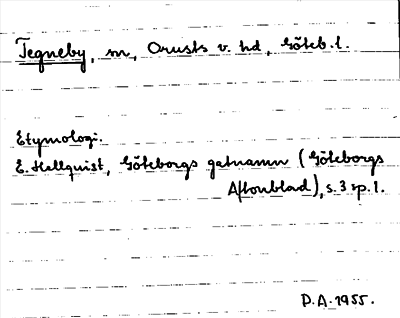 Tegneby, sn, Orusts v. hd, Göteb. l.
Etymologi.
E. Hellquist, Göteborgs gatnamn (Göteborgs
Aftonblad), s. 3 sp. 1.
P.A. 1955.